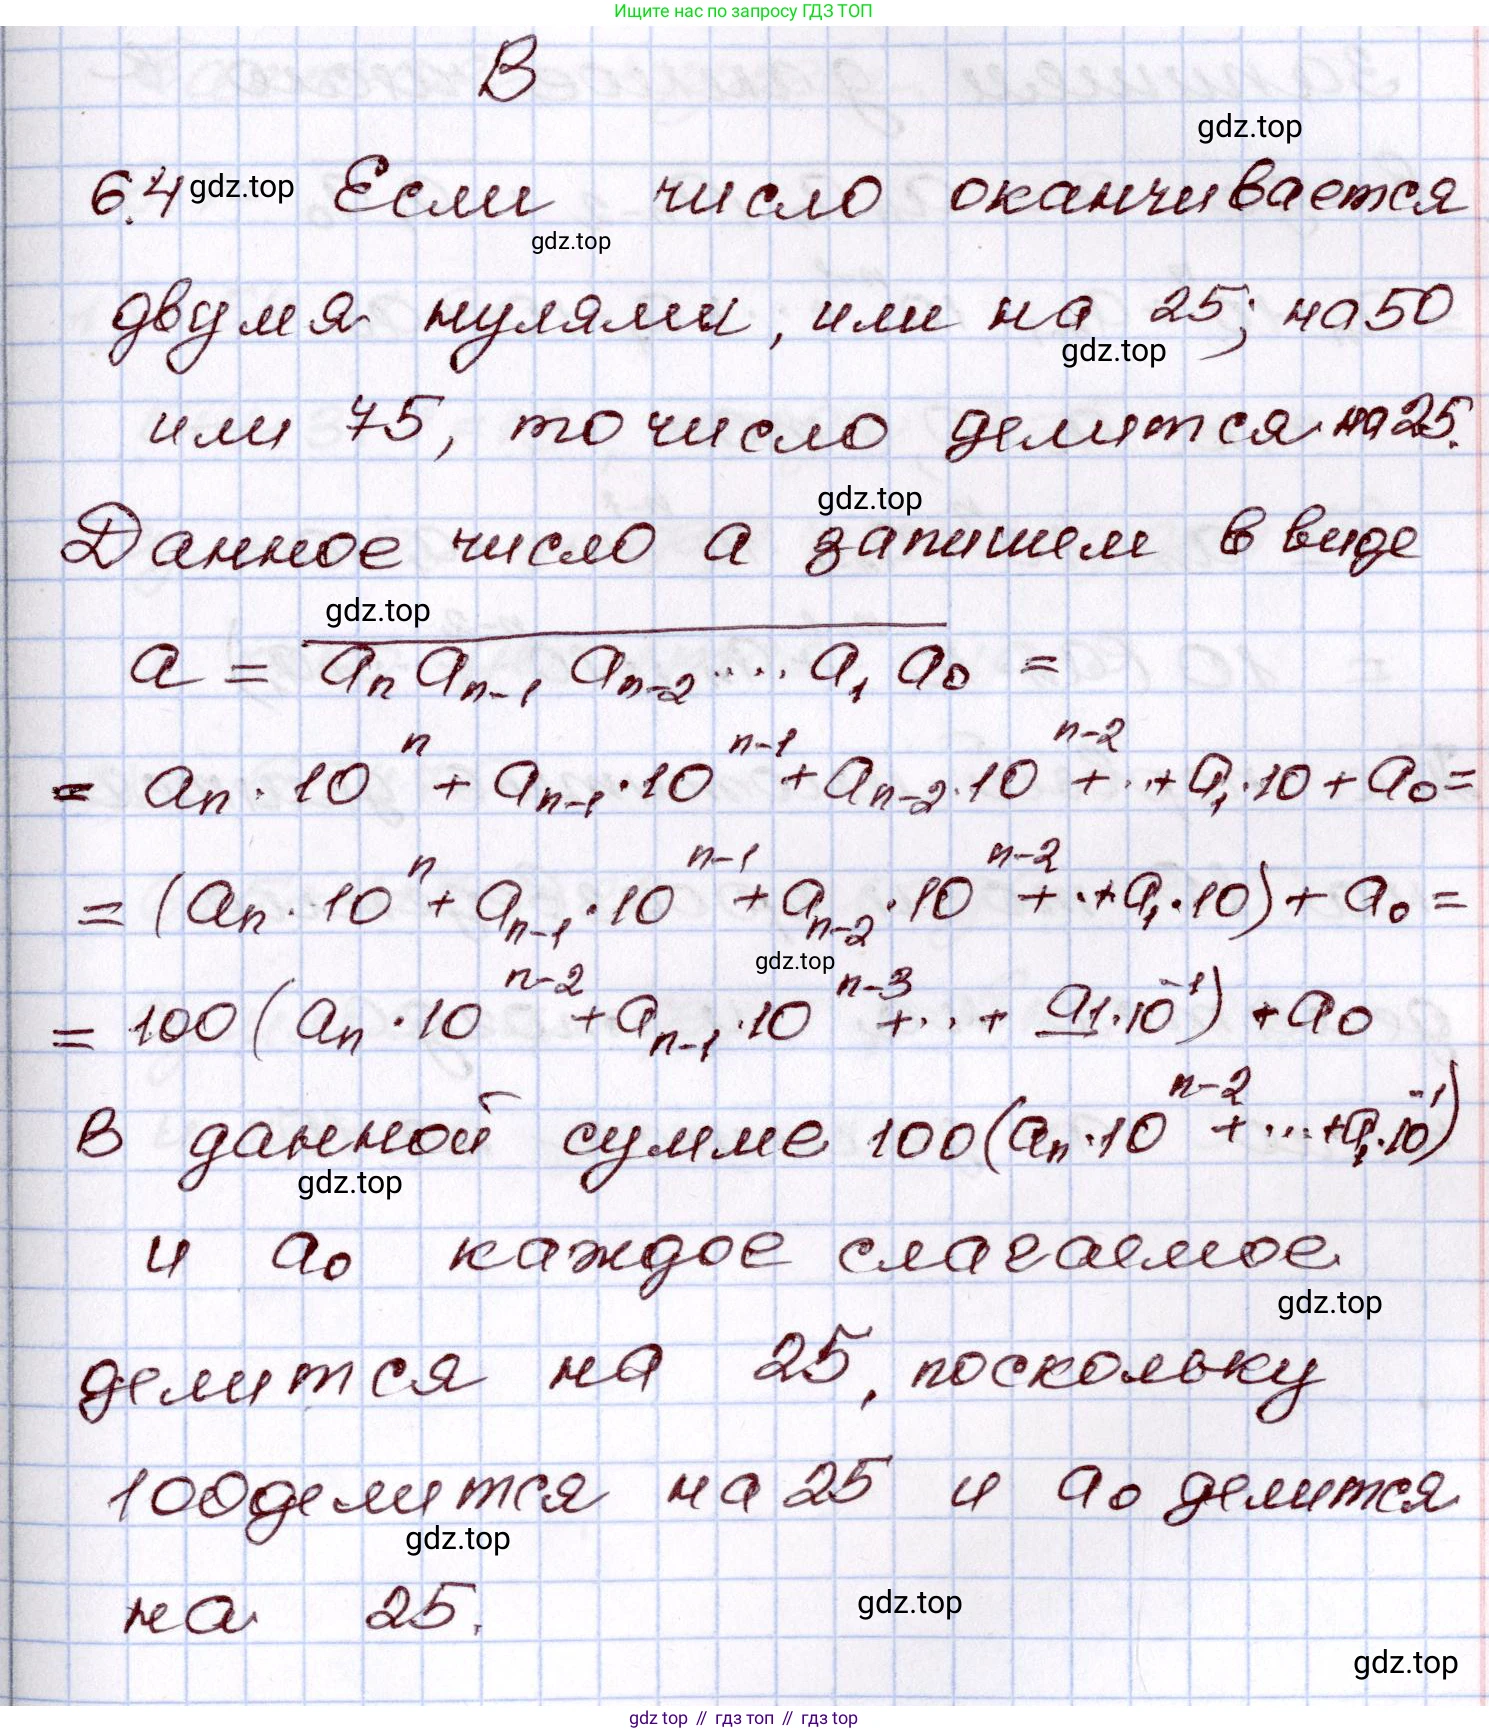 Ищите нас по запросу ГДЗ ТОП
В
gdz.top
6.4 gdz.top Если число оканчивается
gdz.top
двумя нулями, или на 25; на 50
gdz.top
или 75, то число делится на 25.
gdz.top
Данное число a запишем в виде
gdz.top
a = \overline{a_n a_{n-1} a_{n-2} .... a_1 a_0} =
= a_n · 10^n + a_{n-1} · 10^{n-1} + a_{n-2} · 10^{n-2} + ... + a_1 · 10 + a_0 =
= (a_n · 10^n + a_{n-1} · 10^{n-1} + a_{n-2} · 10^{n-2} + ... + a_1 · 10) + a_0 =
gdz.top
= 100 (a_n · 10^{n-2} + a_{n-1} · 10^{n-3} + ... + a_1 · 10^{-1}) + a_0
В данной сумме 100(a_n · 10^{n-2} + ... + a_1 · 10^{-1})
gdz.top
и a_0 каждое слагаемое
gdz.top
делится на 25, поскольку
100 делится на 25 и a_0 делится
gdz.top
на 25.
gdz.top
gdz.top
gdz top // гдз топ // гдз top